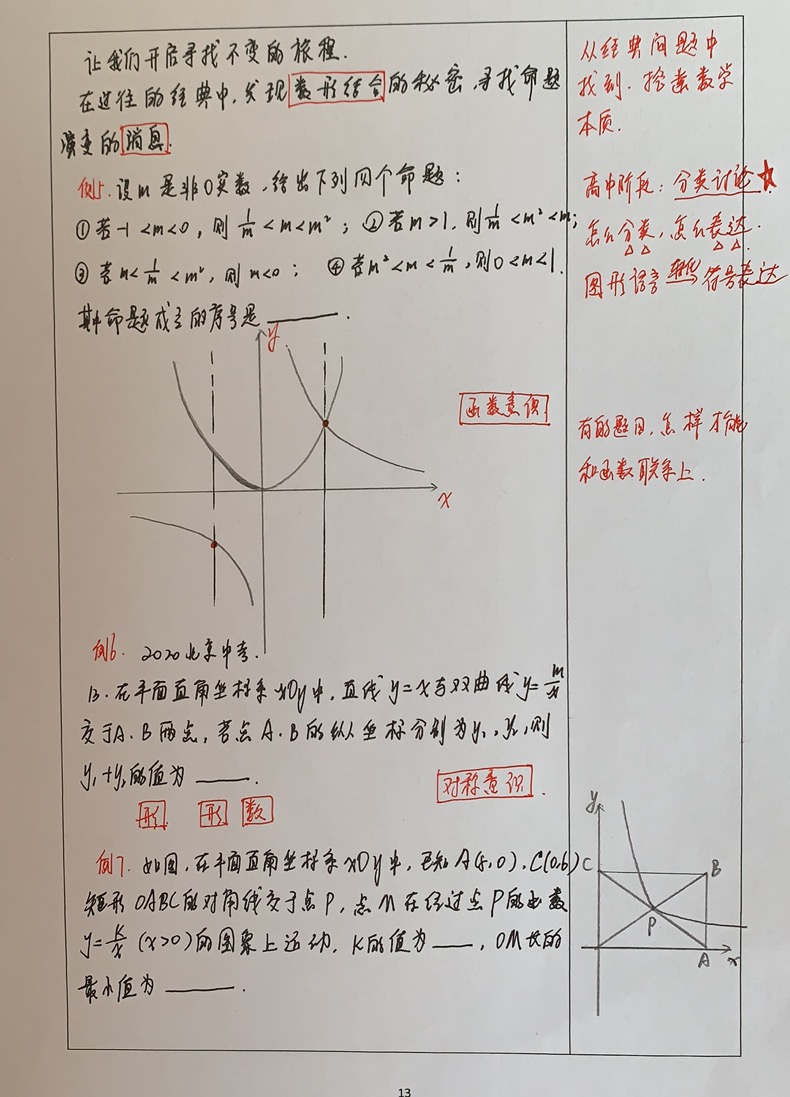 让我们开启寻找不变的旅程.
在过往的经典中,发现数形结合的秘密,寻找命题
演变的消息.
例5.设m是非0实数,给出下列四个命题:
①若-1<m<0,则1/m<m<m²;②若m>1,则1/m<m²<m;
③若m<1/m<m²,则m<0;④若m²<m<1/m,则0<m<1.
其中命题成立的序号是______.
y
x
函数意识
例6. 2020北京中考.
13.在平面直角坐标系xOy中,直线y=x与双曲线y=m/x
交于A.B两点,若点A.B的纵坐标分别为y₁,y₂,则
y₁+y₂的值为____.
形 形 数
对称意识.
例7.如图,在平面直角坐标系xOy中,已知A(5,0),C(0,6)
矩形OABC的对角线交于点P,点M在经过点P的函数
y=k/x(x>0)的图象上运动,K的值为____,OM长的
最小值为______.
从经典问题中
找到.挖掘数学
本质.
高中阶段:分类讨论★
怎么分类,怎么表达.
图形语言转化符号表达
有的题目,怎样才能
和函数联系上.
y
C
B
P
A
x
13